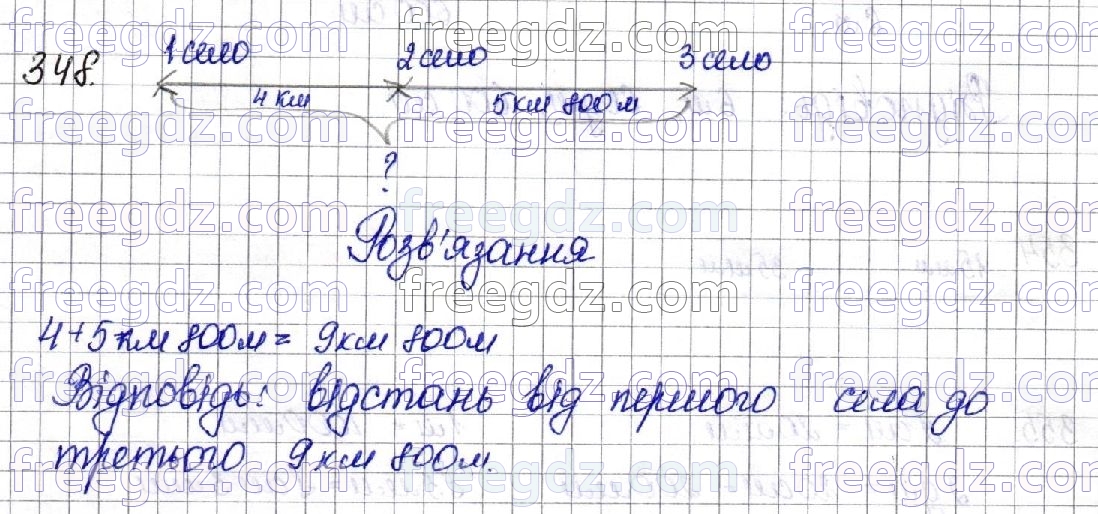 348.
1 село 2 село 3 село
4 км 5 км 800 м
?
Розв'язання
4+5 км 800 м = 9 км 800 м
Відповідь: відстань від першого села до
третього 9 км 800 м.
freegdz.com